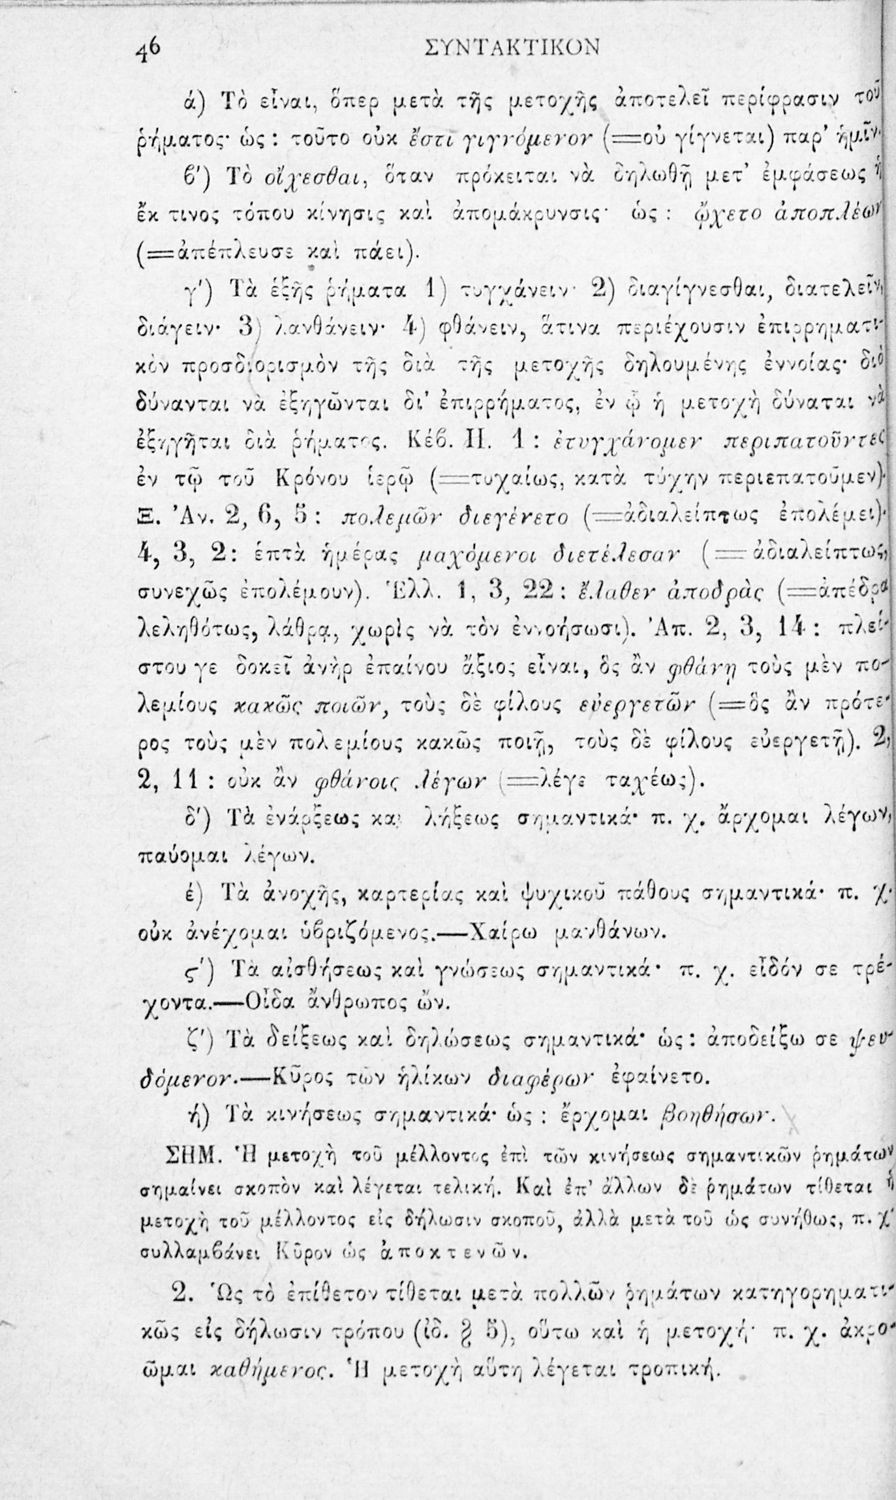 46 ΣΥΝΤΑΚΤΙΚΟΝ
ά) Τὸ εἶναι, ὅπερ μετὰ τῆς μετοχῆς ἀποτελεῖ περίφρασιν τοῦ
ῥήματος· ὡς : τοῦτο οὐκ ἔστι γιγνόμενον (=οὐ γίγνεται) παρ’ ἡμῖν·
β΄) Τὸ οἴχεσθαι, ὅταν πρόκειται νὰ δηλωθῇ μετ’ ἐμφάσεως ἡ
ἔκ τινος τόπου κίνησις καὶ ἀπομάκρυνσις· ὡς : ᾤχετο ἀποπλέων
(=ἀπέπλευσε καὶ πάει).
γ΄) Τὰ ἑξῆς ῥήματα 1) τυγχάνειν· 2) διαγίγνεσθαι, διατελεῖν,
διάγειν· 3) λανθάνειν· 4) φθάνειν, ἅτινα περιέχουσιν ἐπιρρηματι-
κὸν προσδιορισμὸν τῆς διὰ τῆς μετοχῆς δηλουμένης ἐννοίας· διὸ
δύνανται νὰ ἐξηγῶνται δι’ ἐπιρρήματος, ἐν ᾧ ἡ μετοχὴ δύναται νὰ
ἐξηγῆται διὰ ῥήματος. Κέβ. Π. 1 : ἐτυγχάνομεν περιπατοῦντες
ἐν τῷ τοῦ Κρόνου ἱερῷ (=τυχαίως, κατὰ τύχην περιεπατοῦμεν)·
Ξ. Ἀν. 2, 6, 5 : πολεμῶν διεγένετο (=ἀδιαλείπτως ἐπολέμει)·
4, 3, 2: ἑπτὰ ἡμέρας μαχόμενοι διετέλεσαν (=ἀδιαλείπτως,
συνεχῶς ἐπολέμουν). Ἑλλ. 1, 3, 22 : ἔλαθεν ἀποδρὰς (=ἀπέδρα
λεληθότως, λάθρᾳ, χωρὶς νὰ τὸν ἐννοήσωσι). Ἀπ. 2, 3, 14 : πλεί-
στου γε δοκεῖ ἀνὴρ ἐπαίνου ἄξιος εἶναι, ὃς ἂν φθάνῃ τοὺς μὲν πο-
λεμίους κακῶς ποιῶν, τοὺς δὲ φίλους εὐεργετῶν (=ὃς ἂν πρότε-
ρος τοὺς μὲν πολεμίους κακῶς ποιῇ, τοὺς δὲ φίλους εὐεργετῇ). 2,
2, 11 : οὐκ ἂν φθάνοις λέγων (=λέγε ταχέως).
δ΄) Τὰ ἐνάρξεως καὶ λήξεως σημαντικά· π. χ. ἄρχομαι λέγων,
παύομαι λέγων.
έ) Τὰ ἀνοχῆς, καρτερίας καὶ ψυχικοῦ πάθους σημαντικά· π. χ·
οὐκ ἀνέχομαι ὑβριζόμενος.—Χαίρω μανθάνων.
ϛ΄) Τὰ αἰσθήσεως καὶ γνώσεως σημαντικά· π. χ. εἶδόν σε τρέ-
χοντα.—Οἶδα ἄνθρωπος ὤν.
ζ΄) Τὰ δείξεως καὶ δηλώσεως σημαντικά· ὡς : ἀποδείξω σε ψευ-
δόμενον.—Κῦρος τῶν ἡλίκων διαφέρων ἐφαίνετο.
ή) Τὰ κινήσεως σημαντικά· ὡς : ἔρχομαι βοηθήσων.
ΣΗΜ. Ἡ μετοχὴ τοῦ μέλλοντος ἐπὶ τῶν κινήσεως σημαντικῶν ῥημάτων
σημαίνει σκοπὸν καὶ λέγεται τελική. Καὶ ἐπ’ ἄλλων δὲ ῥημάτων τίθεται ἡ
μετοχὴ τοῦ μέλλοντος εἰς δήλωσιν σκοποῦ, ἀλλὰ μετὰ τοῦ ὡς συνήθως, π. χ·
συλλαμβάνει Κῦρον ὡς ἀποκτενῶν.
2. Ὡς τὸ ἐπίθετον τίθεται μετὰ πολλῶν ῥημάτων κατηγορηματι-
κῶς εἰς δήλωσιν τρόπου (ἰδ. § 5), οὕτω καὶ ἡ μετοχή· π. χ. ἀκρο-
ῶμαι καθήμενος. Ἡ μετοχὴ αὕτη λέγεται τροπική.